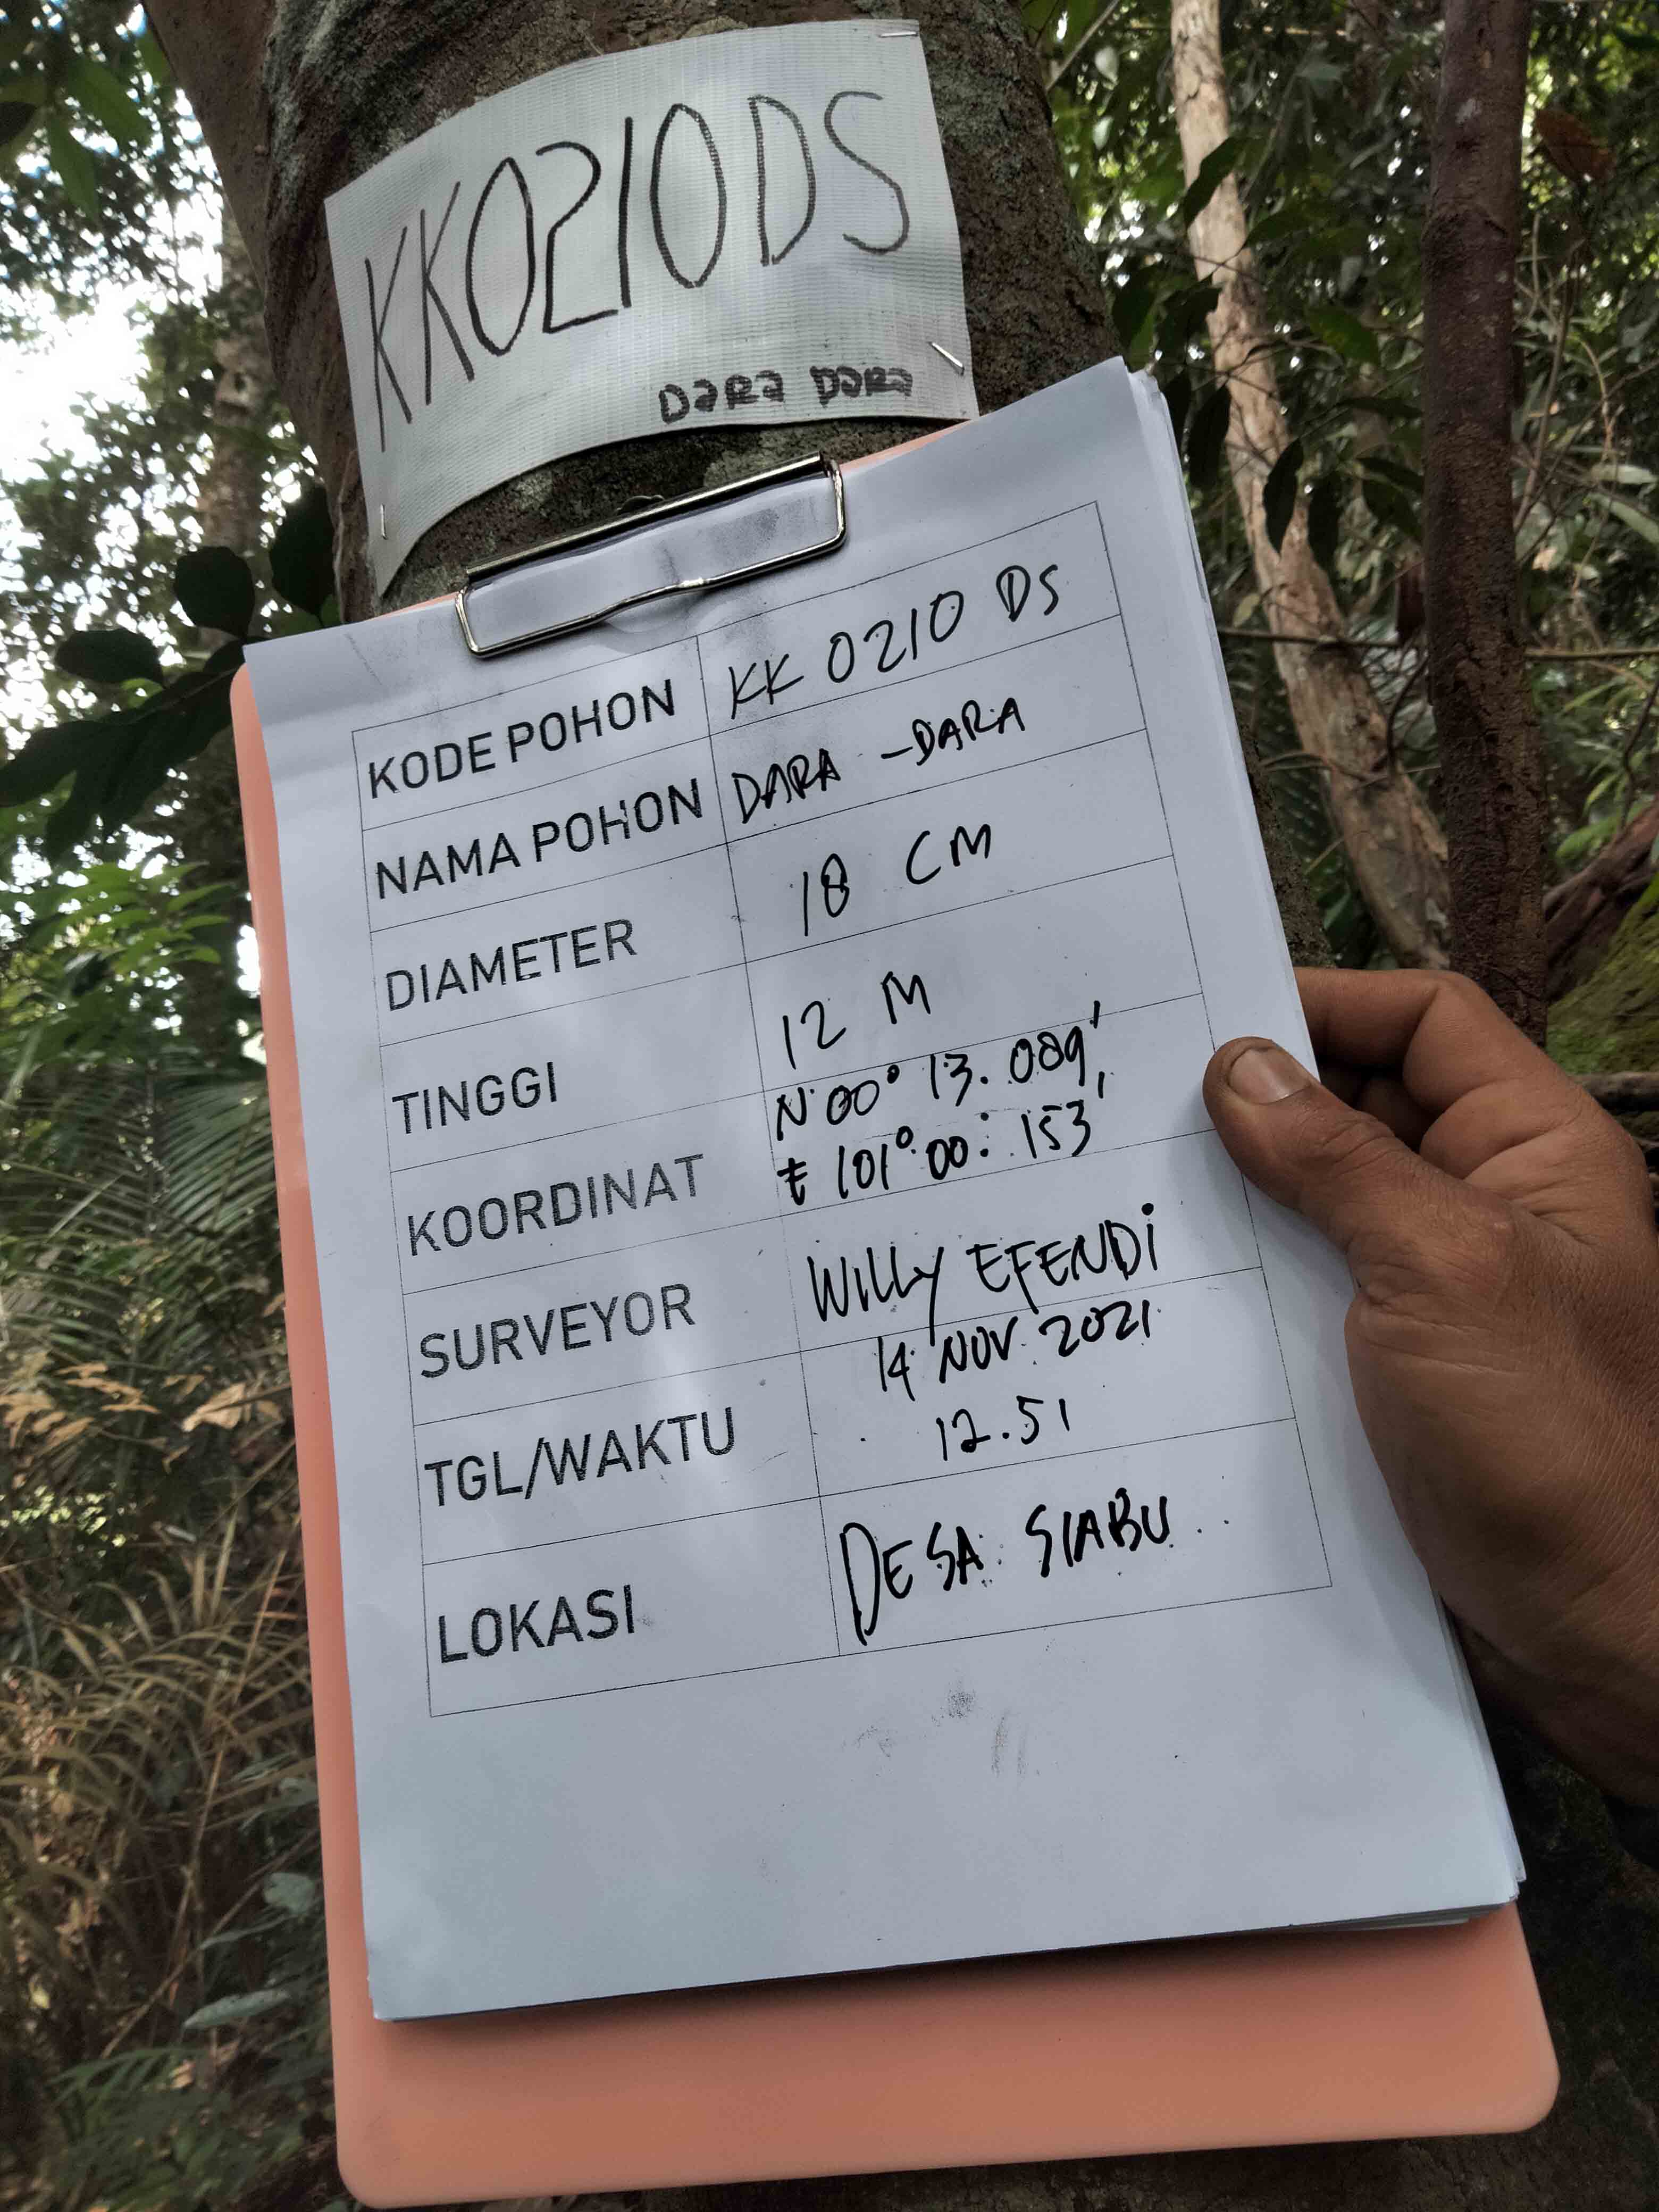 KK0210DS
DARA DARA
KODE POHON KK 0210 DS
NAMA POHON DARA -DARA
DIAMETER 18 CM
TINGGI 12 M
KOORDINAT N 00° 13. 089'
E 101° 00. 153'
SURVEYOR WILLY EFENDI
TGL/WAKTU 14 NOV 2021
12.51
LOKASI DESA SIABU